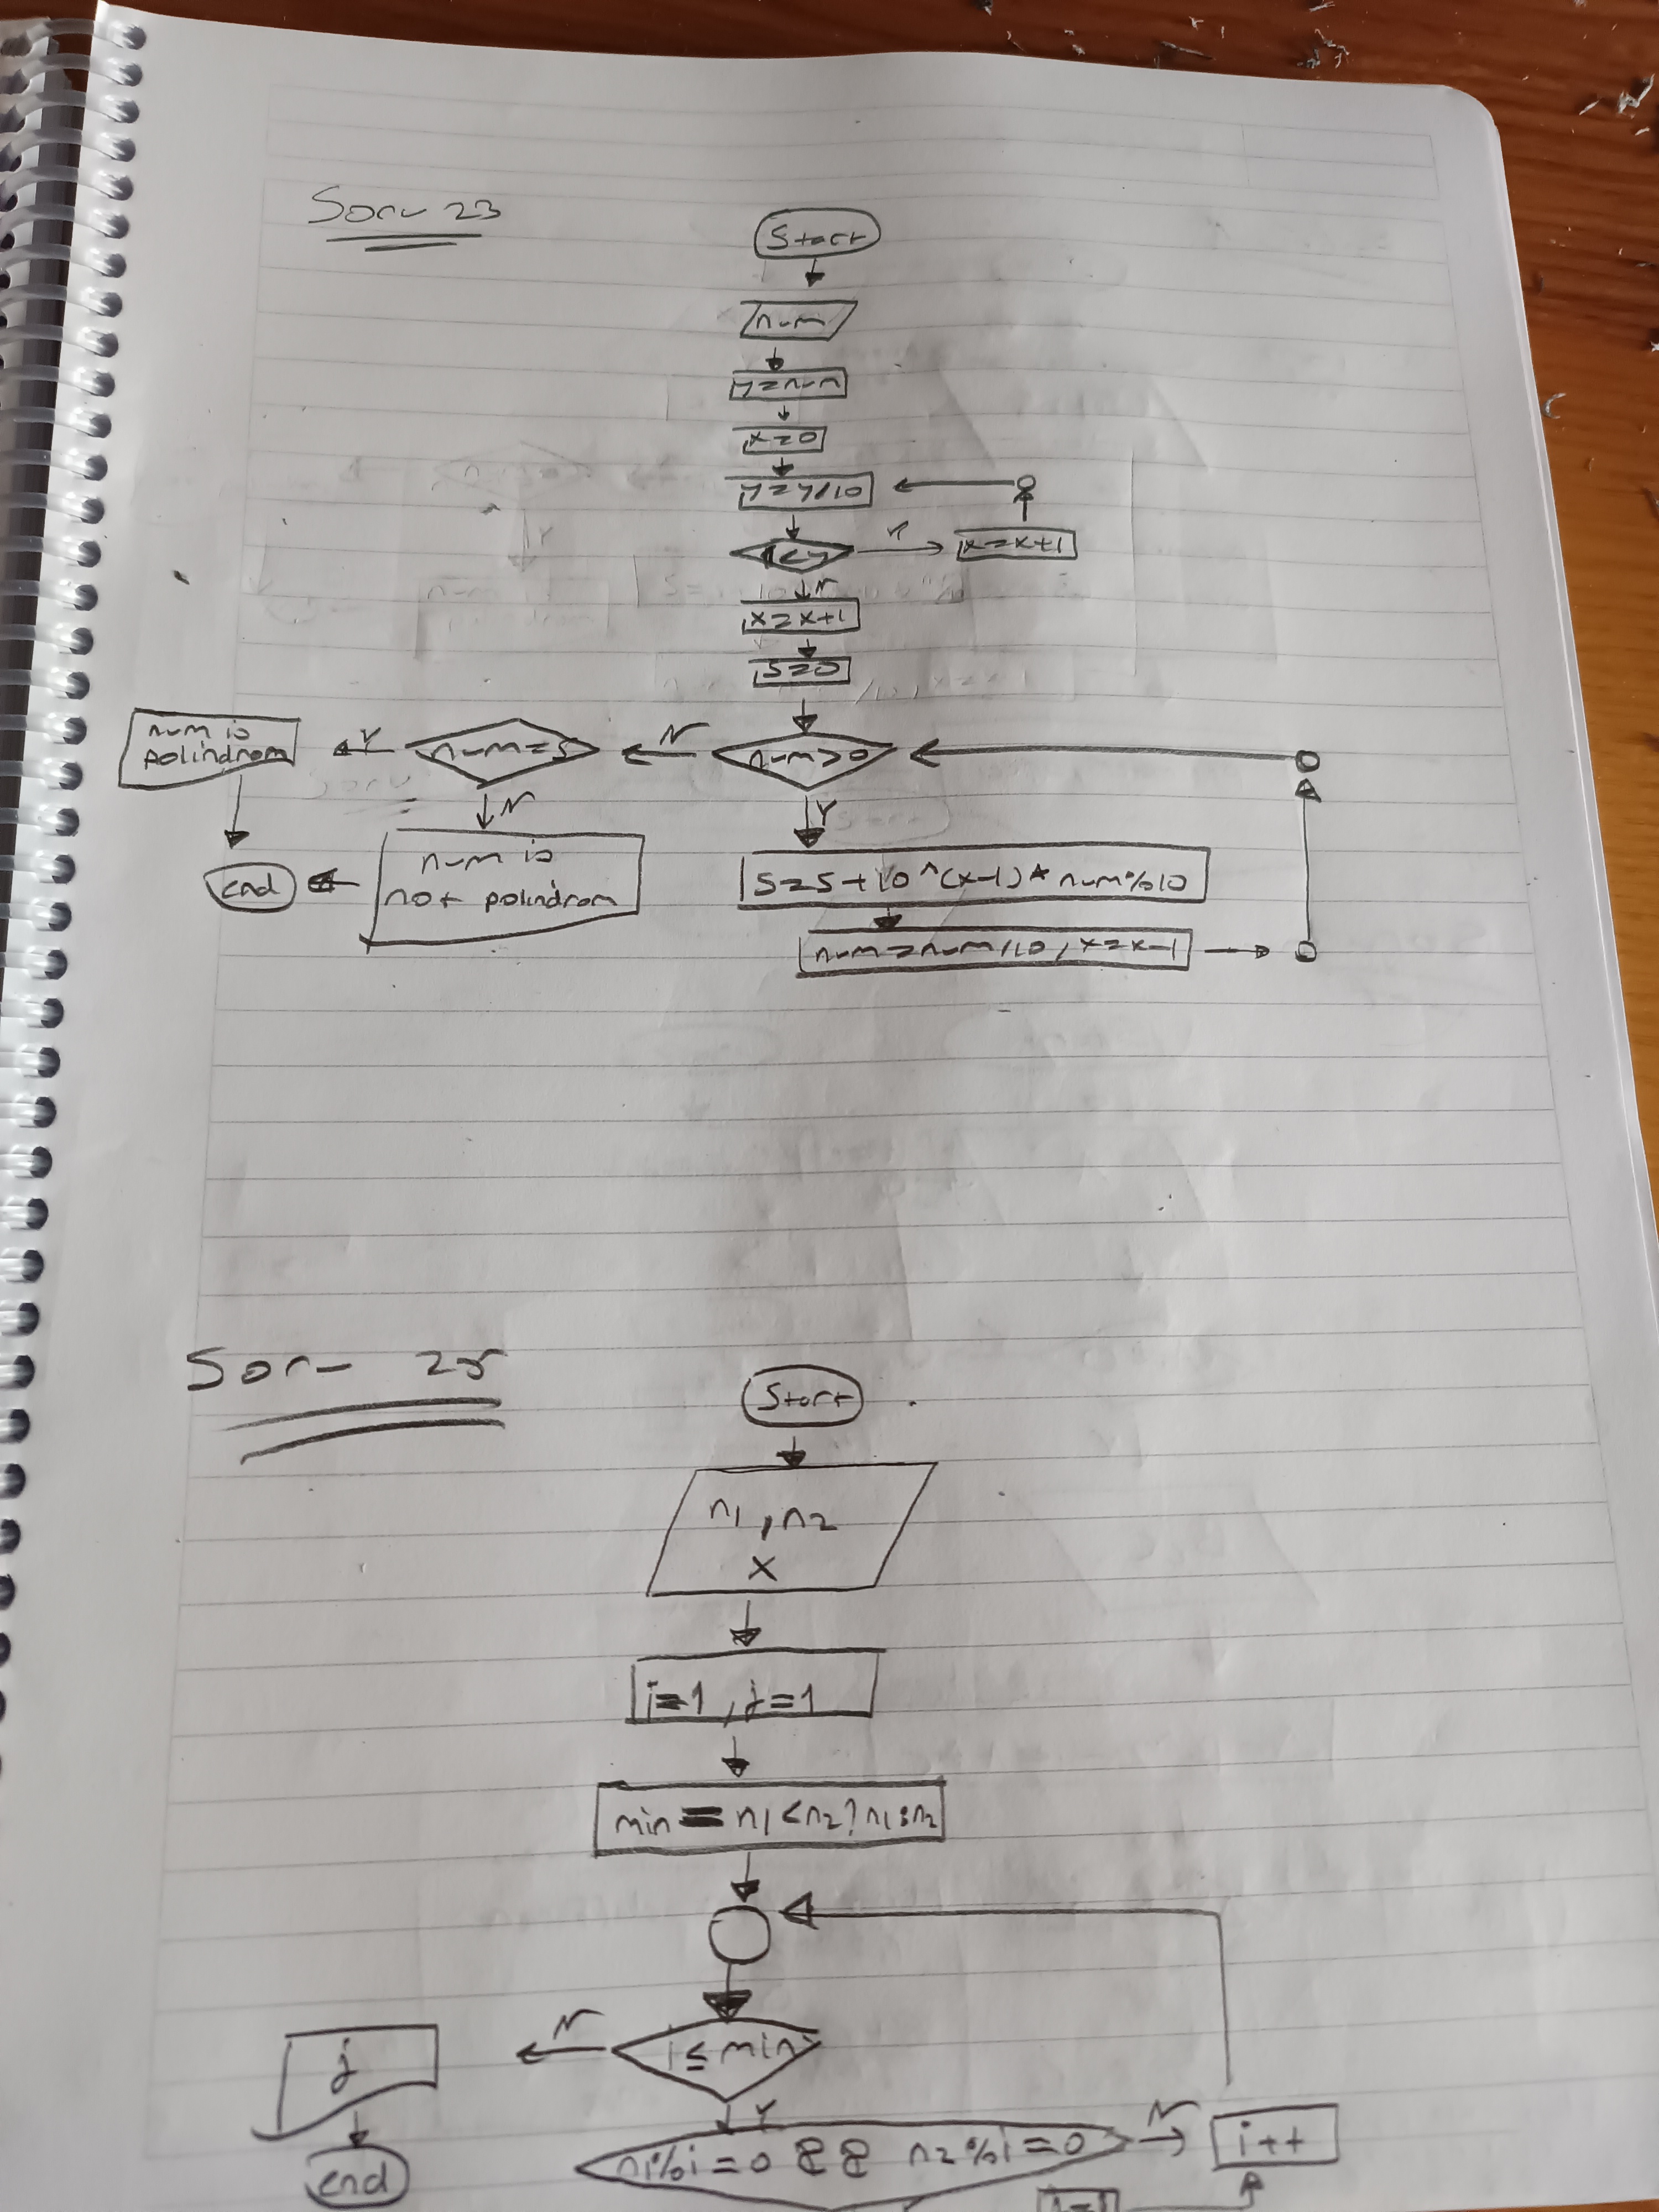 Soru 23
Start
num
y=num
x=0
y=y/10
Y
x=x+1
N
x=x+1
s=0
num is
polindrom
Y
num=s
N
num>0
N
Y
num is
not polindrom
end
s=s+10^(x-1)*num%10
num=num/10, x=x-1
Soru 25
Start
n1, n2
x
i=1, j=1
min = n1<n2?n1:n2
N
i≤min
j
Y
end
n1%i=0 && n2%i=0
N
i++